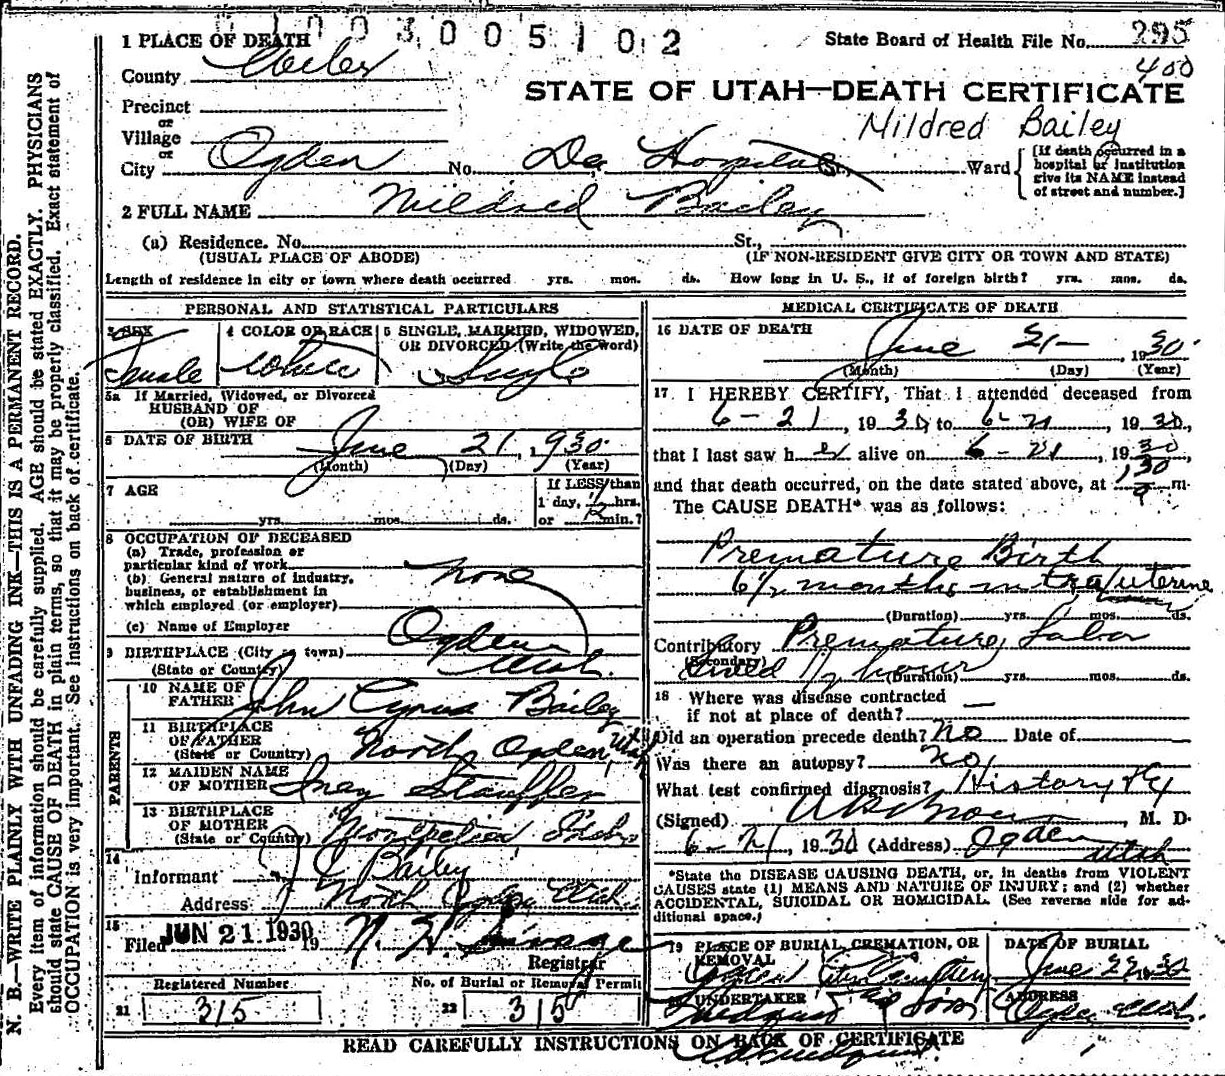 1003005102
State Board of Health File No. 295
400
1 PLACE OF DEATH
County Weber
STATE OF UTAH—DEATH CERTIFICATE
Precinct
or
Village
Mildred Bailey
or
City Ogden No. Dee Hospital St., Ward
[If death occurred in a
hospital or institution
give its NAME instead
of street and number.]
2 FULL NAME Mildred Bailey
(a) Residence. No. St.,
(USUAL PLACE OF ABODE) (IF NON-RESIDENT GIVE CITY OR TOWN AND STATE)
Length of residence in city or town where death occurred yrs. mos. ds. How long in U. S., if of foreign birth? yrs. mos. ds.
PERSONAL AND STATISTICAL PARTICULARS
3 SEX
Female
4 COLOR OR RACE
White
5 SINGLE, MARRIED, WIDOWED,
OR DIVORCED (Write the word)
Single
5a If Married, Widowed, or Divorced
HUSBAND OF
(OR) WIFE OF
6 DATE OF BIRTH June 21, 1930
(Month) (Day) (Year)
7 AGE
yrs. mos. ds.
If LESS than
1 day, 1/2 hrs.
or min.?
8 OCCUPATION OF DECEASED
(a) Trade, profession or
particular kind of work
(b) General nature of industry,
business, or establishment in
which employed (or employer)
none
(c) Name of Employer
9 BIRTHPLACE (City or town) Ogden
(State or Country) Utah.
PARENTS
10 NAME OF
FATHER John Cyrus Bailey
11 BIRTHPLACE
OF FATHER
(State or Country) North Ogden, Utah
12 MAIDEN NAME
OF MOTHER Inez Stauffer
13 BIRTHPLACE
OF MOTHER
(State or Country) Montpelier Idaho
14
Informant J C Bailey
Address North Ogden, Utah.
15
Filed JUN 21 1930 19
Registrar
Registered Number
21 315
No. of Burial or Removal Permit
22 315
MEDICAL CERTIFICATE OF DEATH
16 DATE OF DEATH
June 21 — , 1930
(Month) (Day) (Year)
17 I HEREBY CERTIFY, That I attended deceased from
6 — 21 , 1930 to 6-21 , 1930,
that I last saw her alive on 6 — 21 , 1930,
and that death occurred, on the date stated above, at m.
The CAUSE DEATH* was as follows:
Premature Birth
6 1/2 months intra/uterine
(Duration) yrs. mos. ds.
Contributory Premature Labor
(Secondary) lived 1/2 hour (Duration) yrs. mos. ds.
18 Where was disease contracted
if not at place of death? —
Did an operation precede death? No Date of
Was there an autopsy? No,
What test confirmed diagnosis? History
(Signed) M. D.
6 - 21, 1930 (Address) Ogden
Utah
*State the DISEASE CAUSING DEATH, or, in deaths from VIOLENT
CAUSES state (1) MEANS AND NATURE OF INJURY; and (2) whether
ACCIDENTAL, SUICIDAL OR HOMICIDAL. (See reverse side for ad-
ditional space.)
19 PLACE OF BURIAL, CREMATION, OR
REMOVAL
Ogden
DATE OF BURIAL
June 22, 30
20 UNDERTAKER
Lindquist & Sons
ADDRESS
Ogden Utah.
READ CAREFULLY INSTRUCTIONS ON BACK OF CERTIFICATE
N. B.—WRITE PLAINLY WITH UNFADING INK—THIS IS A PERMANENT RECORD.
Every item of information should be carefully supplied. AGE should be stated EXACTLY. PHYSICIANS
should state CAUSE OF DEATH in plain terms, so that it may be properly classified. Exact statement of
OCCUPATION is very important. See instructions on back of certificate.